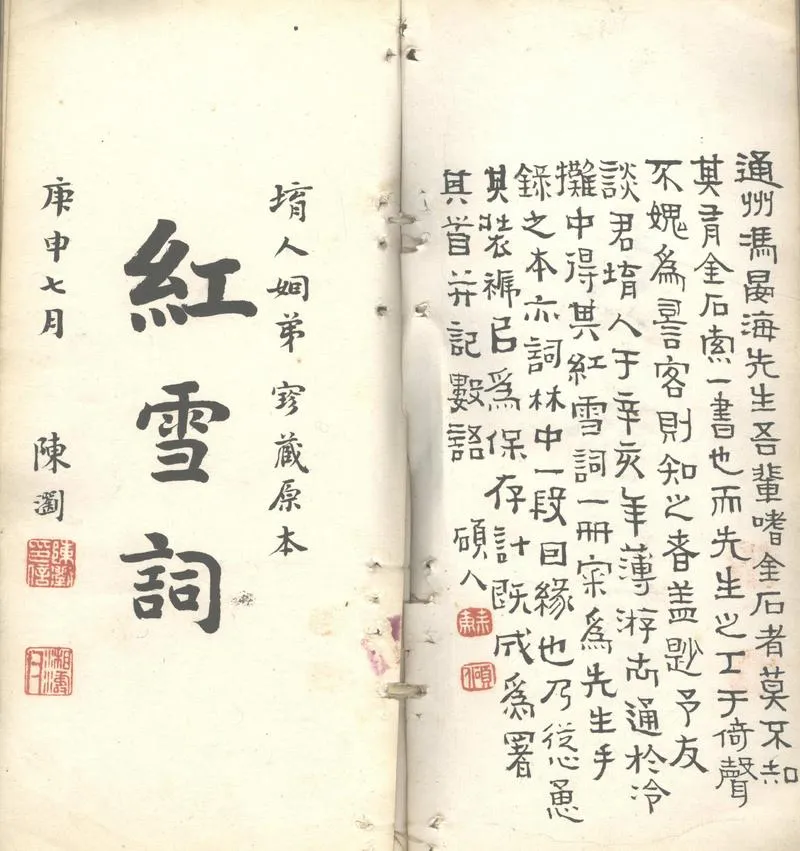 通州馮晏海先生吾輩嗜金石者莫不知
其有金石索一書也而先生之工于倚聲
不媿為䛐客則知之者盖尟予友
談君堉人于辛亥年薄游通於冷
攤中得其紅雪詞一冊寀為先生手
錄之本亦詞林中一段因緣也乃慫恿
其裝褫㠯為保存計既成為署
其首并記數語 碩人
堉人姻弟 珍藏原本
紅雪詞
庚申七月 陳瀏
陳瀏印信